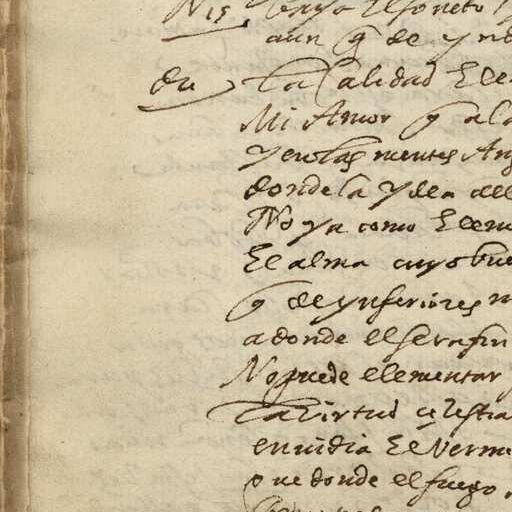 Nis. tenga El soneto
aun q de yn
du La calidad Ele
Mi Amor q a la
y en las mentes Ang
donde la ydea del
No ya como Elem
El alma cuyo bue
q de ynferiores m
adonde el serafin
No puede elementar
La virtud çelestia
enuidia El Verm
que donde el fuego